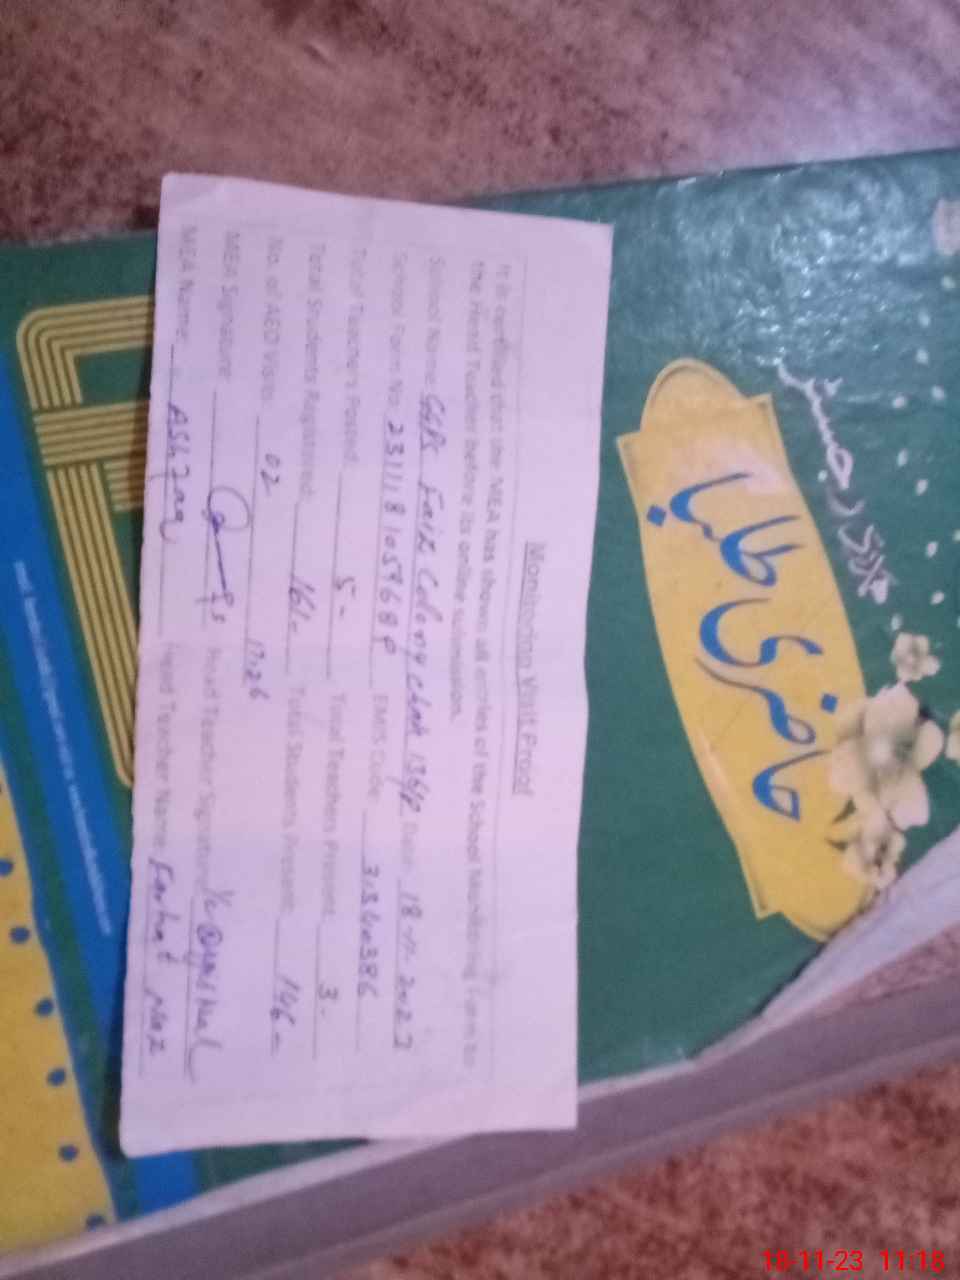 Monitoring Visit Proof
It is certified that the MEA has shown all entries of the School Monitoring Form to
the Head Teacher before its online submission.
School Name: GGPS Faiz Colony chak 136/P Date: 18-11-2023
School Form No: EMIS Code: 31340386
Total Teachers Posted: 5- Total Teachers Present: 3-
Total Students Registered: 161- Total Students Present: 146-
No. of AEO Visits: 02
MEA Signature: Head Teacher Signature:
MEA Name: Ashfaq Head Teacher Name: Farhat Naz
جلالی رجسٹر
حاضری طلبا
18-11-23 11:18